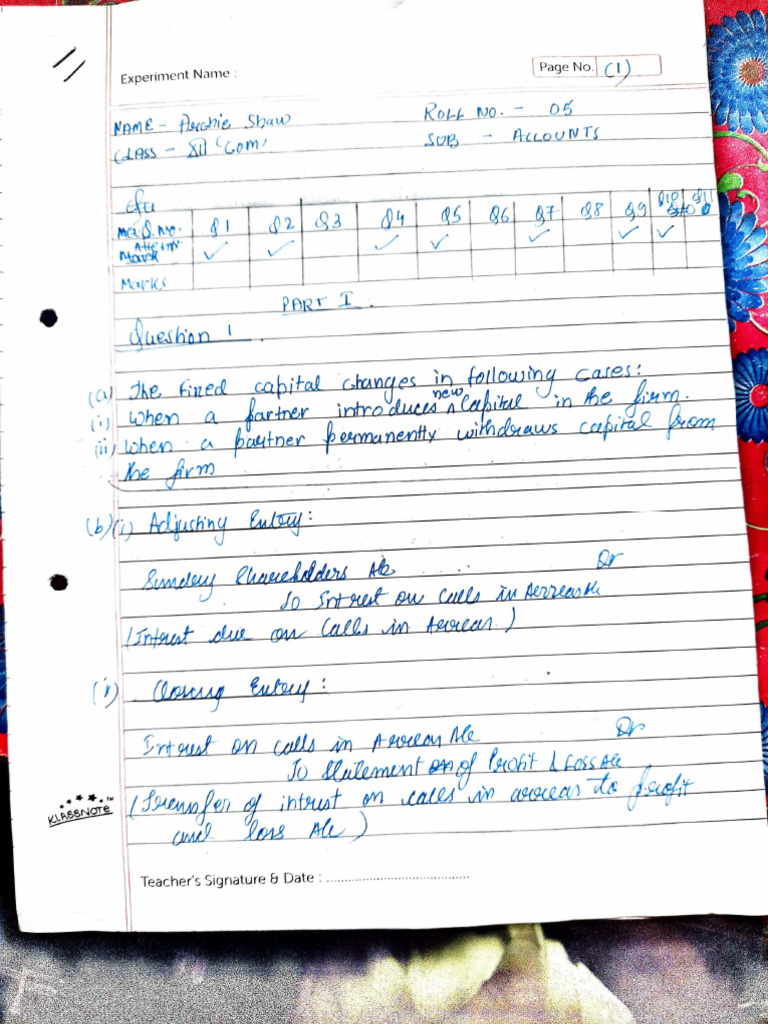 Experiment Name :
Page No. (1)
NAME - Archie Shaw
ROLL NO. - 05
CLASS - XII 'COM'
SUB - ACCOUNTS
Q.No. Q1 Q2 Q3 Q4 Q5 Q6 Q7 Q8 Q9 Q10 Q11
✓ ✓ ✓ ✓ ✓ ✓ ✓
Marks
PART I.
Question 1.
(a) The Fixed capital changes in following cases:
(i) When a partner introduces new Capital in the firm.
(ii) When a partner permanently withdraws capital from
the firm
(b) (i) Adjusting Entry:
Sundry Shareholders A/c ..... Dr
To Intrest on Calls in Arrears A/c
(Intrest due on Calls in Arrear.)
(ii) Closing Entry:
Intrest on calls in Arrear A/c Dr
To Statement of Profit & Loss A/c
(Transfer of intrest on calls in arrears to profit
and loss A/c)
KLASSNOTE
Teacher's Signature & Date : ........................................